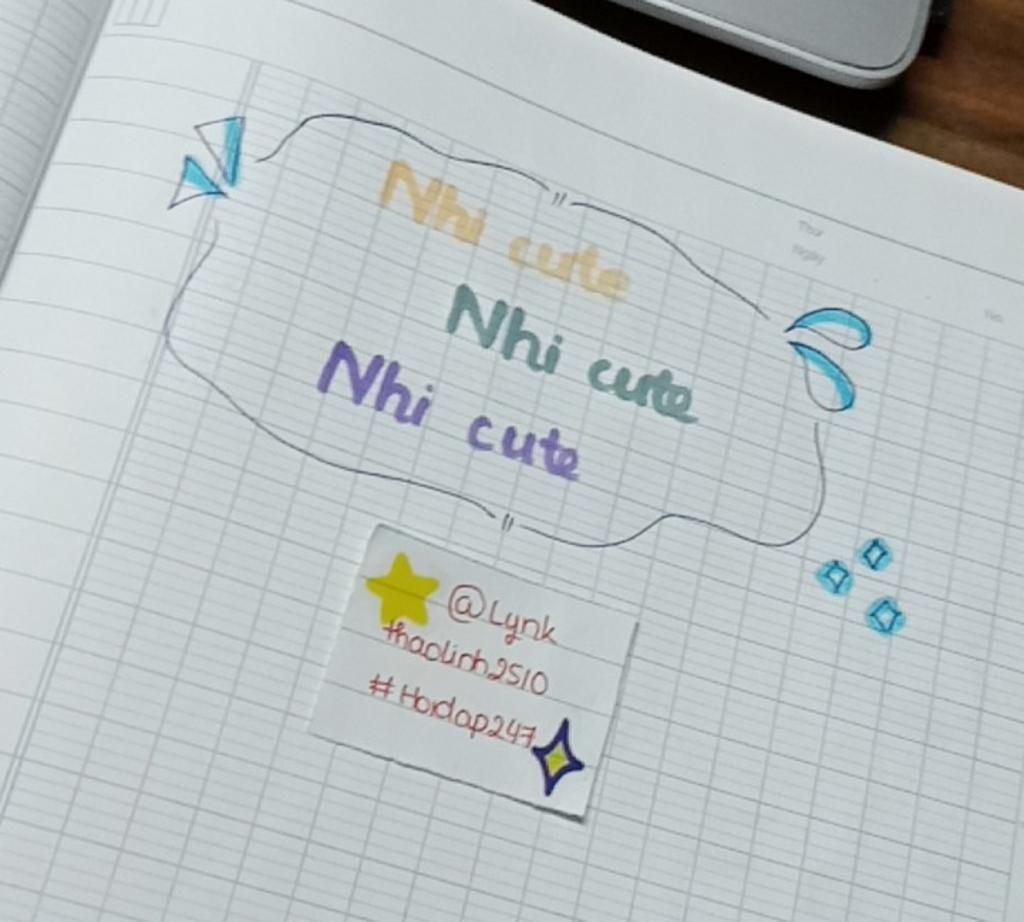 Nhi cute
Nhi cute
Nhi cute
@Lynk
thaolinh2510
#Hoidap247